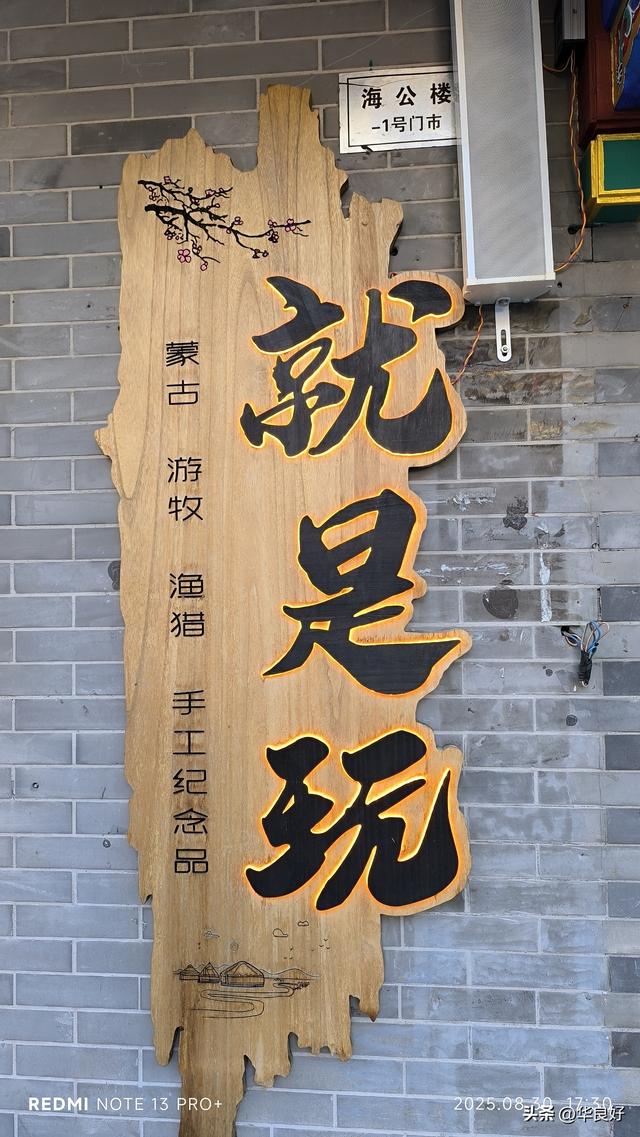 海公楼
-1号门市
就是玩
蒙古 游牧 渔猎 手工纪念品
REDMI NOTE 13 PRO+
2025.08.30 17:30
头条 @华良好